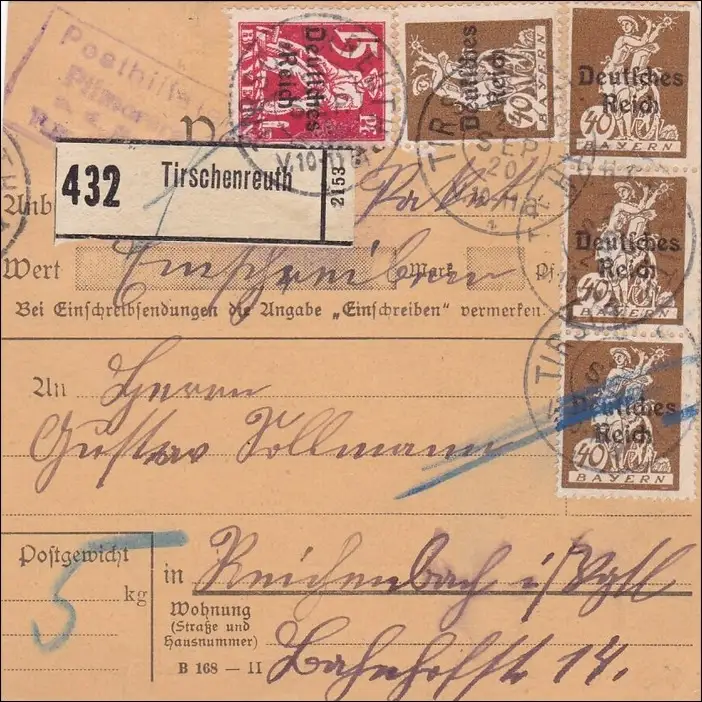 Posthilfst
Pilmer
15 PF.
BAYERN
Deutsches
Reich
40
BAYERN
Deutsches
Reich
40
BAYERN
Deutsches
Reich
40
BAYERN
Deutsches
Reich
40
BAYERN
Deutsches
Reich
TIRSCH
SEP
20
V.10-11
432 Tirschenreuth 2153
Anb Paket
Wert Einschreiben Mark Pf.
Bei Einschreibsendungen die Angabe „Einschreiben" vermerken.
An Herrn
Gustav Sollmann
Postgewicht
5 kg
in Reichenbach i/Vgtl
Wohnung
(Straße und
Hausnummer)
Bahnhofstr 14.
B 168 — II